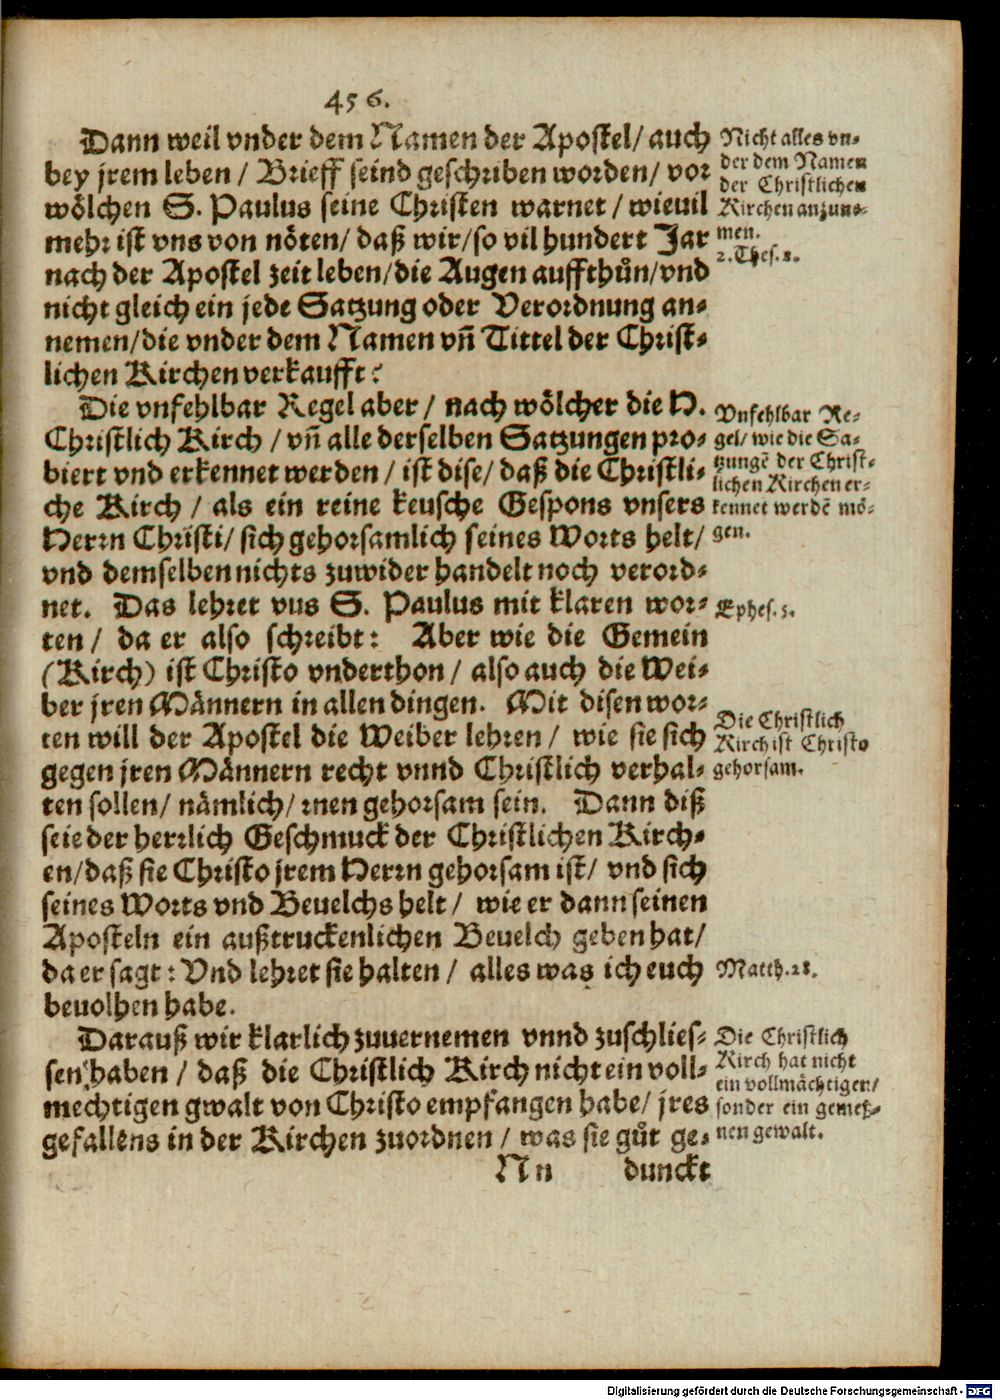 456.
Dann weil vnder dem Namen der Apostel/ auch
bey jrem leben / Brieff seind geschriben worden/ vor
wölchen S. Paulus seine Christen warnet / wieuil
mehr ist vns von nöten/ daß wir/ so vil hundert Jar
nach der Apostel zeit leben/ die Augen auffthůn/ vnd
nicht gleich ein jede Satzung oder Verordnung an⸗
nemen/ die vnder dem Namen vñ Tittel der Christ⸗
lichen Kirchen verkaufft?
Nicht alles vn⸗
der dem Namen
der Christlichen
Kirchen anzune⸗
men.
2. Thes. 2.
Die vnfehlbar Regel aber / nach wölcher die H.
Christlich Kirch / vñ alle derselben Satzungen pro⸗
biert vnd erkennet werden / ist dise/ daß die Christli⸗
che Kirch / als ein reine keusche Gespons vnsers
Herrn Christi/ sich gehorsamlich seines Worts helt/
vnd demselben nichts zuwider handelt noch verord⸗
net. Das lehret vus S. Paulus mit klaren wor⸗
ten / da er also schreibt: Aber wie die Gemein
(Kirch) ist Christo vnderthon / also auch die Wei⸗
ber jren Männern in allen dingen. Mit disen wor⸗
ten will der Apostel die Weiber lehren / wie sie sich
gegen jren Männern recht vnnd Christlich verhal⸗
ten sollen/ nämlich/ jnen gehorsam sein. Dann diß
seie der herrlich Geschmuck der Christlichen Kirch⸗
en/ daß sie Christo jrem Herrn gehorsam ist/ vnd sich
seines Worts vnd Beuelchs helt / wie er dann seinen
Aposteln ein außtruckenlichen Beuelch geben hat/
da er sagt: Vnd lehret sie halten / alles was ich euch
beuolhen habe.
Vnfehlbar Re⸗
gel/ wie die Sa⸗
tzungē der Christ⸗
lichen Kirchen er⸗
kennet werdē mö⸗
gen.
Ephes. 5.
Die Christlich
Kirch ist Christo
gehorsam.
Matth. 28.
Darauß wir klarlich zuuernemen vnnd zuschlies⸗
sen haben / daß die Christlich Kirch nicht ein voll⸗
mechtigen gwalt von Christo empfangen habe/ jres
gefallens in der Kirchen zuordnen / was sie gůt ge⸗
Die Christlich
Kirch hat nicht
ein vollmächtigen/
sonder ein gemeß⸗
nen gewalt.
Nn
dunckt
Digitalisierung gefördert durch die Deutsche Forschungsgemeinschaft - DFG